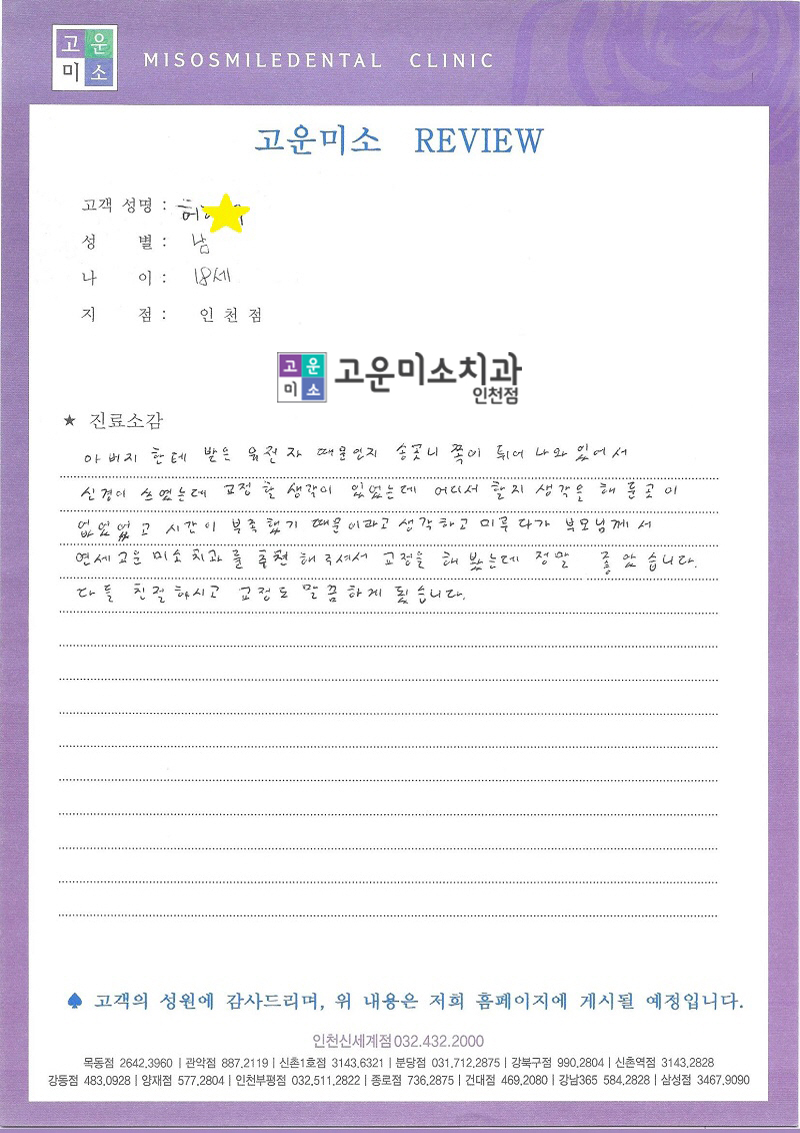 고운
미소
MISOSMILEDENTAL CLINIC
고운미소 REVIEW
고객 성명 : 허
성 별 : 남
나 이 : 18세
지 점 : 인 천 점
고운
미소
고운미소치과
인천점
★ 진료소감
아버지 한테 받은 유전자 때문인지 송곳니 쪽이 튀어 나와 있어서
신경이 쓰였는데 교정 할 생각이 있었는데 어디서 할지 생각을 해 둔 곳이
없었었고 시간이 부족했기 때문이라고 생각하고 미루다가 부모님께서
연세고운 미소치과를 추천 해주셔서 교정을 해 봤는데 정말 좋았습니다.
다들 친절하시고 교정도 말끔하게 됬습니다.
♠ 고객의 성원에 감사드리며, 위 내용은 저희 홈페이지에 게시될 예정입니다.
인천신세계점032.432.2000
목동점 2642.3960 | 관악점 887.2119 | 신촌1호점 3143.6321 | 분당점 031.712.2875 | 강북구점 990.2804 | 신촌역점 3143.2828
강동점 483.0928 | 양재점 577.2804 | 인천부평점 032.511.2822 | 종로점 736.2875 | 건대점 469.2080 | 강남365 584.2828 | 삼성점 3467.9090